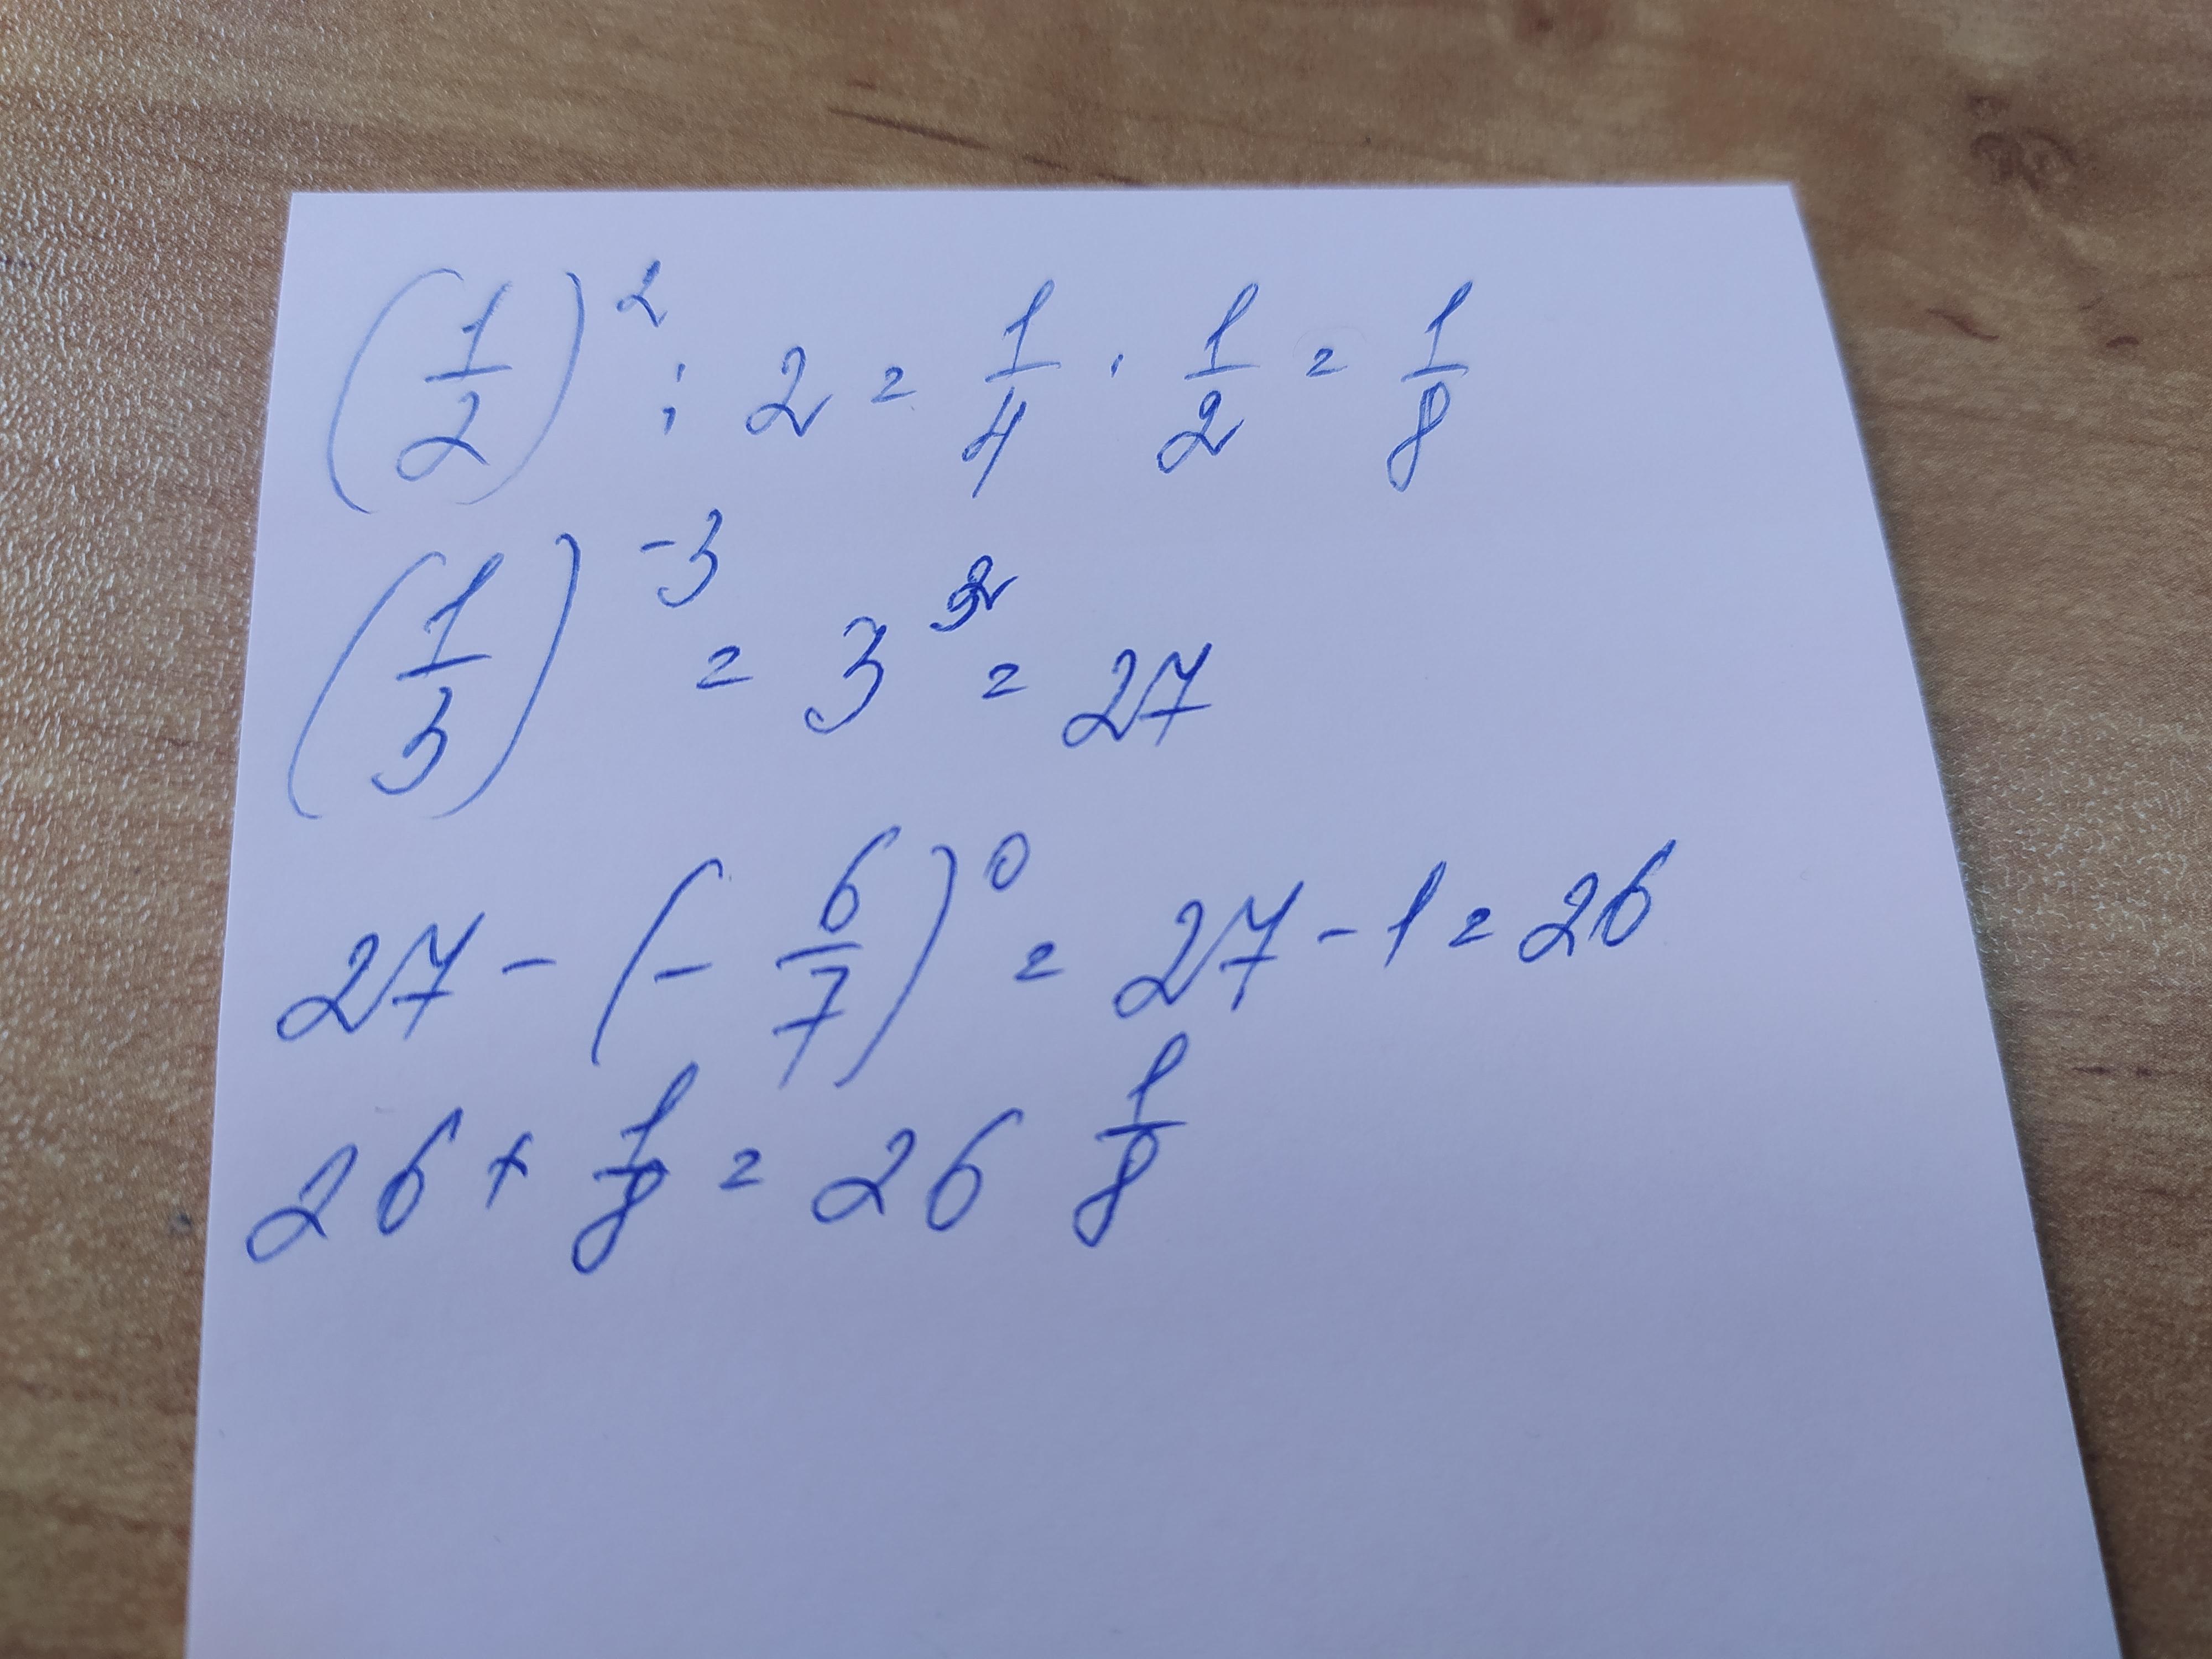 (1/2)² : 2 = 1/4 · 1/2 = 1/8
(1/3)⁻³ = 3² = 27
27 - (- 6/7)⁰ = 27 - 1 = 26
26 + 1/8 = 26 1/8